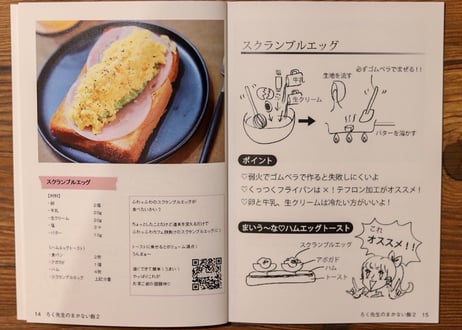 スクランブルエッグ
【材料】
・卵 2個
・牛乳
・生クリーム
・塩
・バター
【ハムエッグトースト】
・食パン 2枚
・アボガド 1個
・ハム 4枚
・スクランブルエッグ 上記分量
ふわっふわのスクランブルエッグが
食べたいかい？
14 ろく先生のまかない飯２
スクランブルエッグ
牛乳
生クリーム
生地を流す
必ずゴムベラでまぜる！！
バターを溶かす
ポイント
♡弱火でゴムベラで作ると失敗しにくいよ
♡くっつくフライパンは×！テフロン加工がオススメ！
♡卵と牛乳、生クリームは冷たい方がいいよ！
まいう〜な♡ハムエッグトースト
スクランブルエッグ
アボガド
ハム
トースト
これ
オススメ！！
ろく先生のまかない飯２ 15